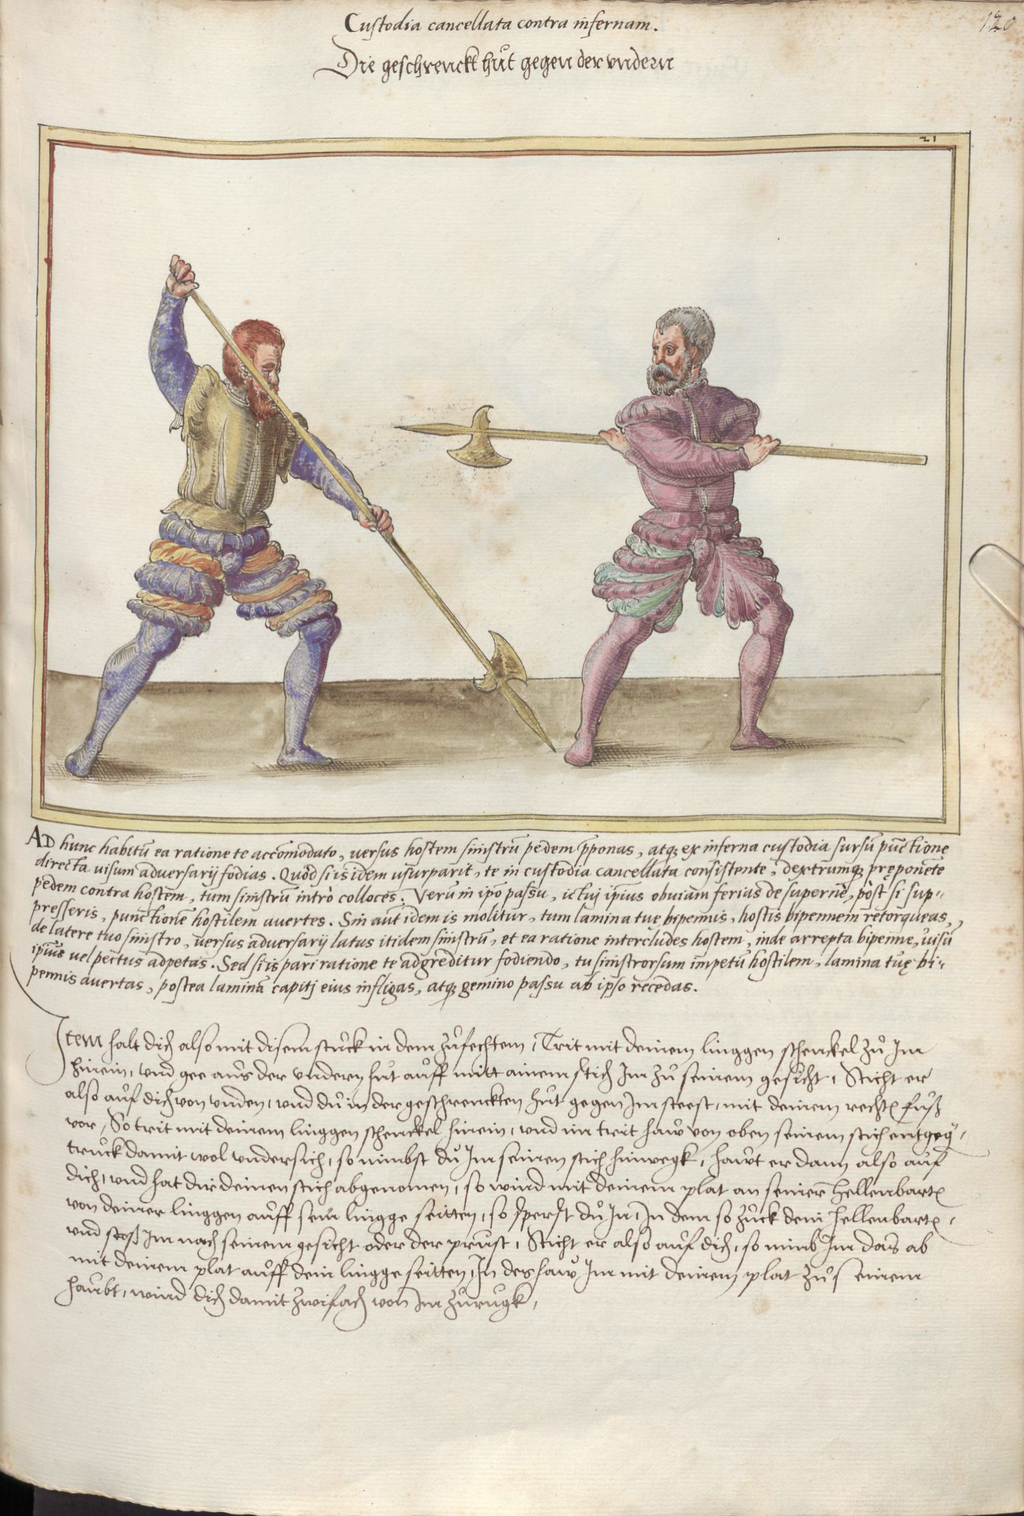 Custodia cancellata contra infernam.
120
Die geschrenckt hůt gegen der vndern
21
AD hunc habitũ ea ratione te accõmodato, versus hostem sinistrũ pedem ꝓponas, atq; ex inferna custodia sursũ pũctione
directa uisum adversarij fodias. Quòd si is idem usurparit, te in custodia cancellata consistente, dextrumq; preponẽte
pedem contra hostem, tum sinistrũ intrò colloces. Verũ in ipo passu, ictuj ipius obuiam ferias de supernè, post si sup-
presseris, punctionẽ hostilem avertes. Sin aũt idem is molitur, tum lamina tuę bipennis, hostis bipennem retorqueas,
de latere tuo sinistro, versus adversarij latus itidem sinistrũ, et ea ratione intercludes hostem, inde arrepta bipenne, uisũ
ipius vel pectus adpetas. Sed si is pari ratione te adgreditur fodiendo, tu sinistrorsum impetũ hostilem, lamina tuę bi-
pennis avertas, postea laminã capitj eius infligas, atq; gemino passu ab ipso recedas.
Item halt dich also mit disem stuck in dem zůfechten, Trit mit deinem linggen schenckel zů Im
hinein, vnd gee aus der vndern hůt auff mitt ainem stich Im zů seinem gesicht, Sticht er
also auf dich von vnden, vnd du in der geschrenckten hut gegen Im steest, mit deinem rechtẽ fůß
vor, So trit mit deinem linggen schenckel hinein, vnd im trit haw von oben seinem stich entgeg̃,
truck damit wol vndersich, so nimbst dů Im seinen stich hinwegk, hawt er dann also auf
dich, vnd hat dir deinen stich abgenomen, so wind mit deinem plat an seiner hellenbartẽ
von deiner linggen auff sein lingge seitten, so sperst du In, In dem so zuck dein hellenbartẽ,
vnd stoß Im nach seinem gesicht oder der prust, Sticht er also auf dich, so nimb Im das ab
mit deinem plat auff dein lingge seitten, In des haw Im mit deinem plat zů seinem
haubt, wind dich damit zwifach von Im zurugk,